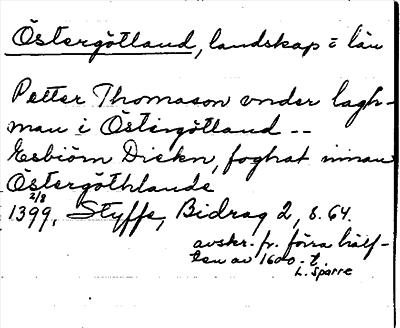 Östergötland, landskap o län
Petter Thomason vnder lagh-
man i Östergötland --
Esbiörn Diekn, foghat innan
Östergöthlande
2/8
1399, Styffe, Bidrag 2, s. 64.
avskr. fr. förra hälf-
ten av 1600-t.
L. Sparre